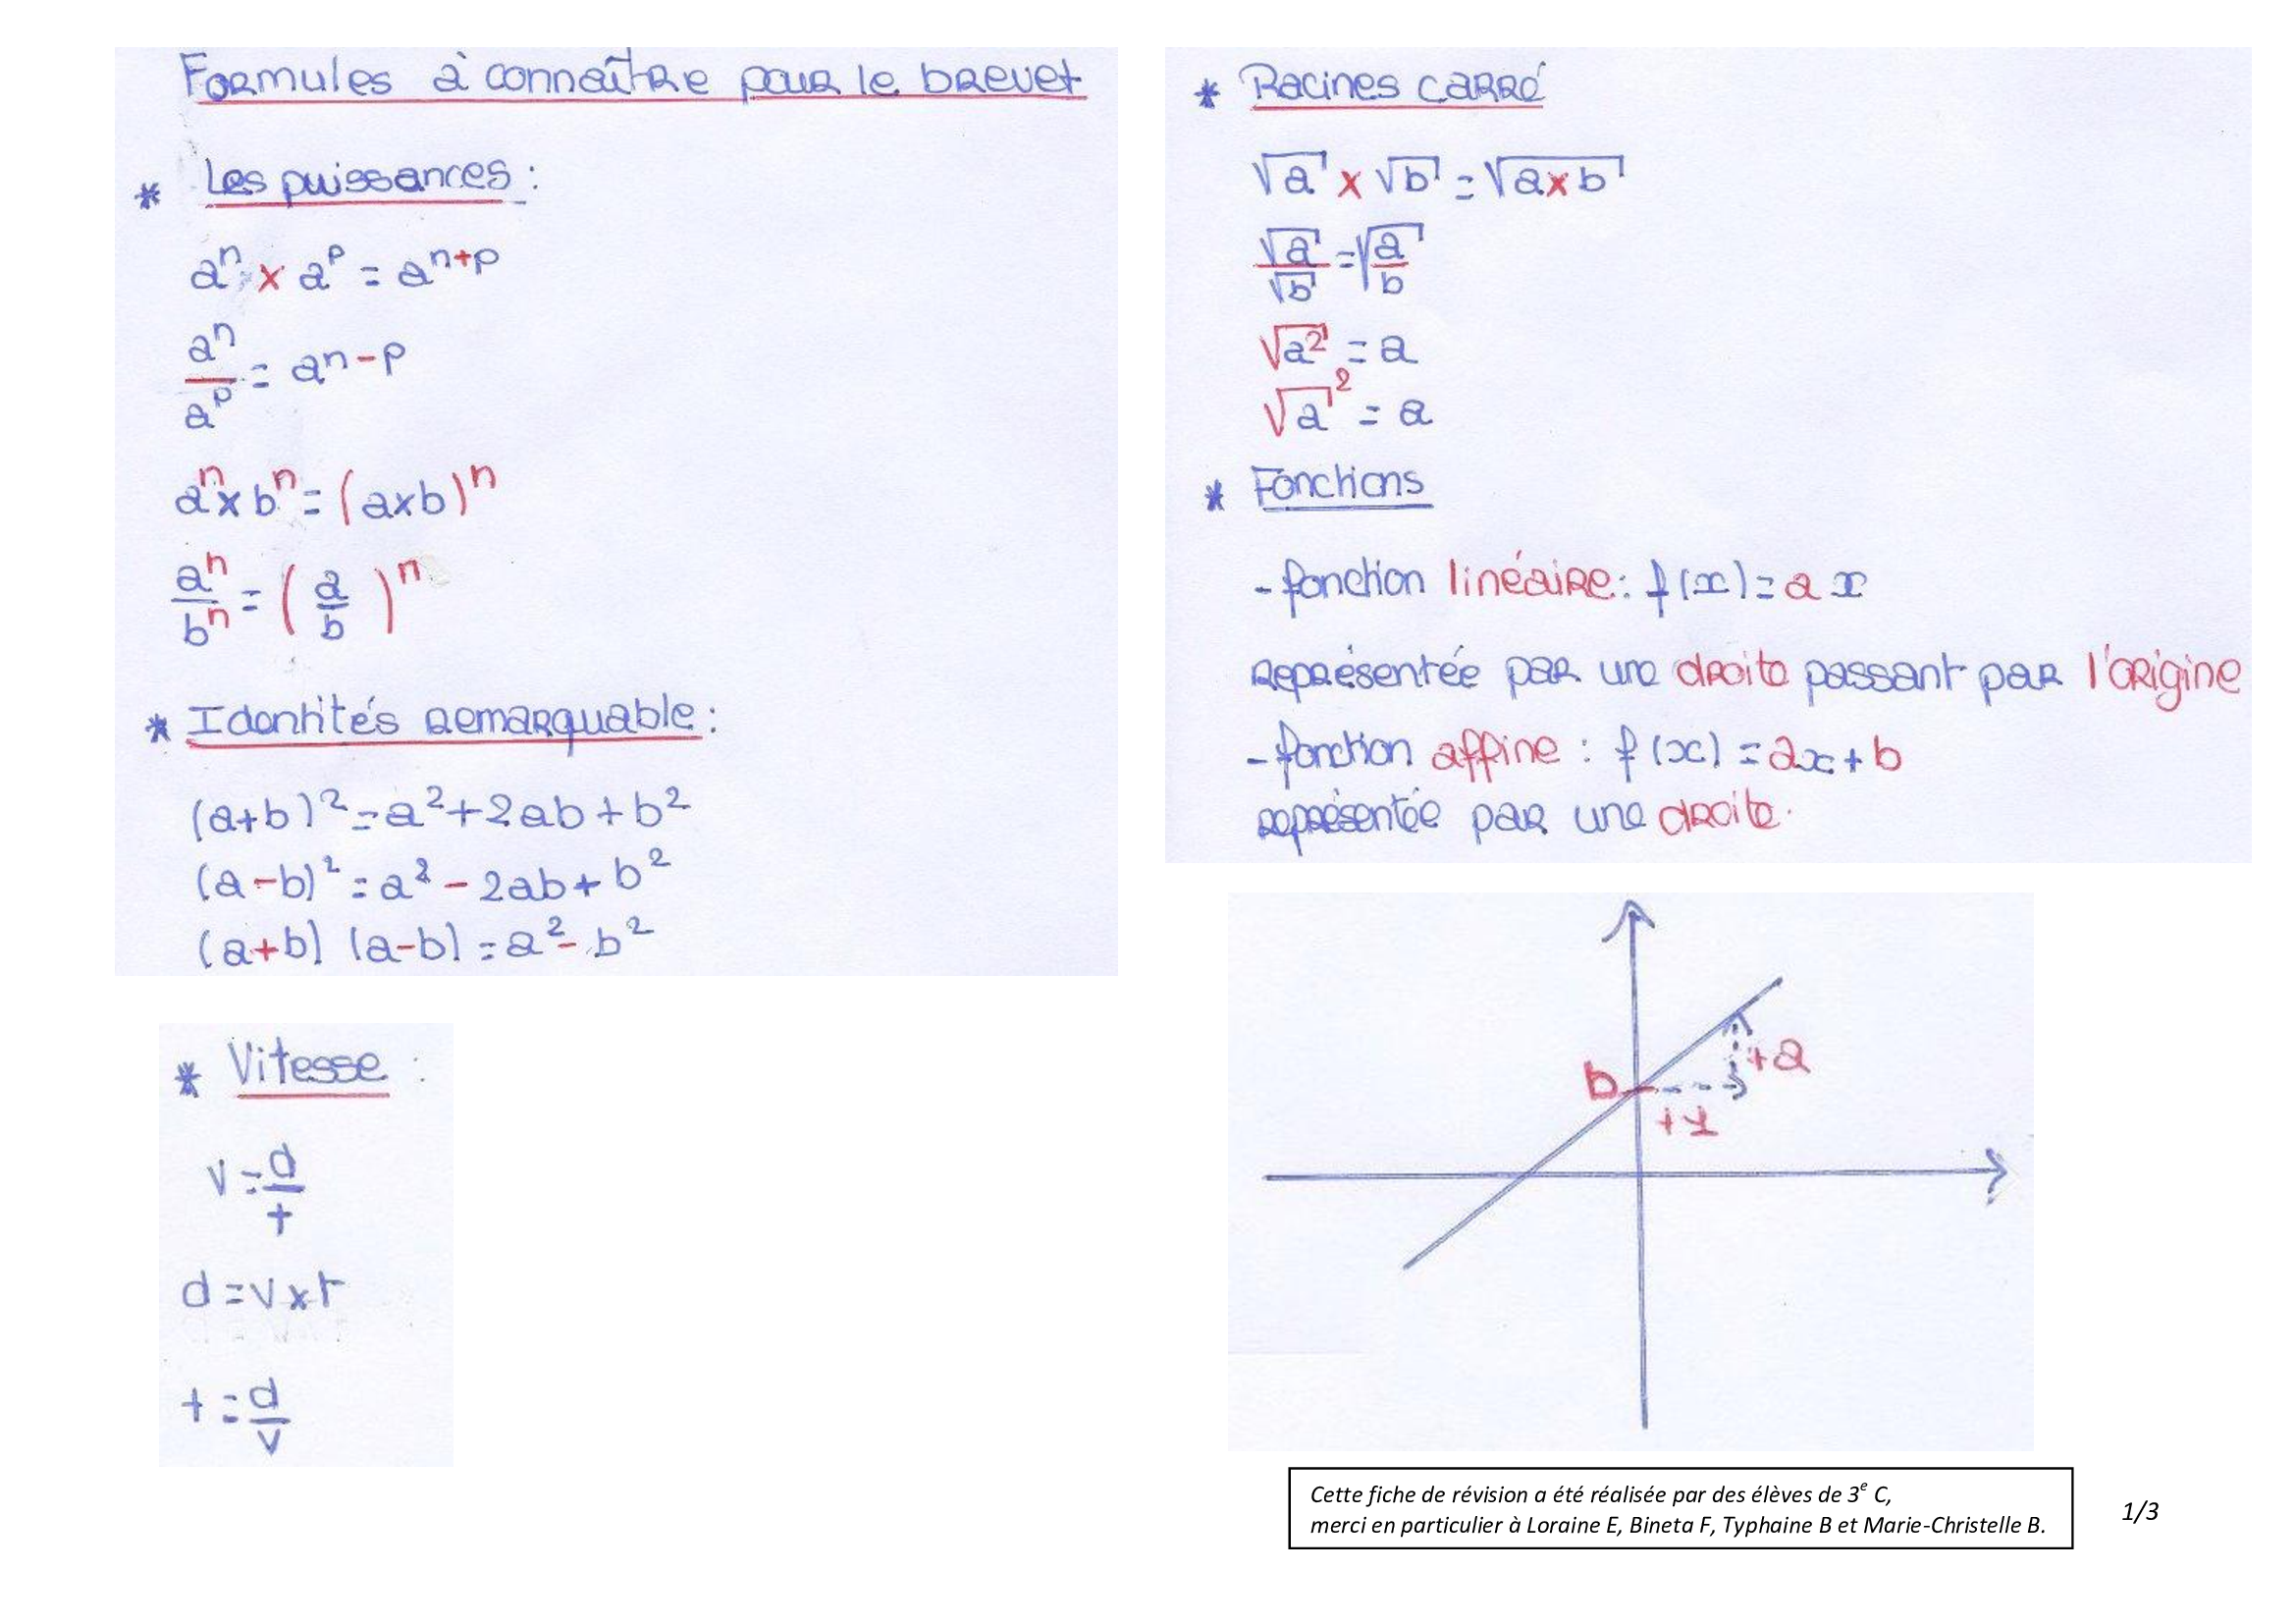 Formules à connaître pour le brevet
* Les puissances :
aⁿ x aᵖ = aⁿ⁺ᵖ
aⁿ/aᵖ = aⁿ⁻ᵖ
aⁿ x bⁿ = (axb)ⁿ
aⁿ/bⁿ = (a/b)ⁿ
* Identités remarquable :
(a+b)² = a²+2ab+b²
(a-b)² = a²-2ab+b²
(a+b) (a-b) = a²-b²
* Vitesse :
v = d/t
d = v x t
t = d/v
* Racines carré
√a x √b = √axb
√a/√b = √a/b
√a² = a
√a² = a
* Fonctions
- fonction linéaire : f(x) = ax
représentée par une droite passant par l'origine
- fonction affine : f(x) = ax+b
représentée par une droite.
b
+a
+1
Cette fiche de révision a été réalisée par des élèves de 3ᵉ C,
merci en particulier à Loraine E, Bineta F, Typhaine B et Marie-Christelle B.
1/3